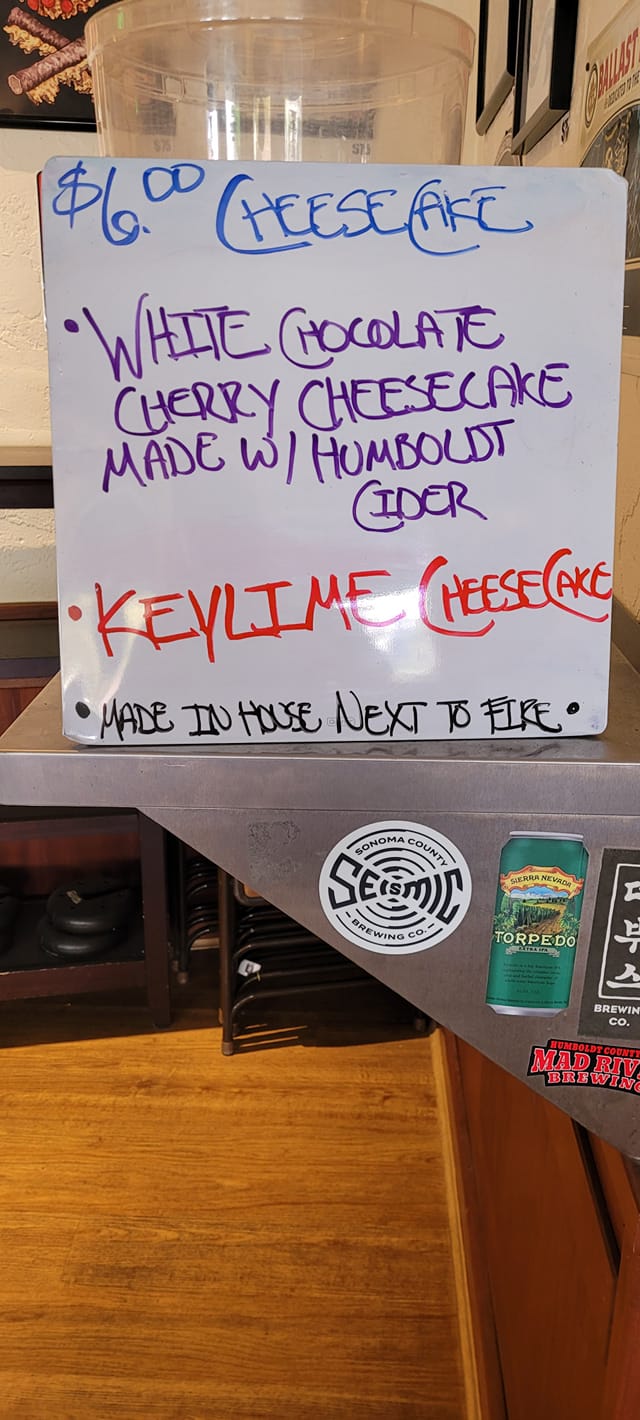 $6.00 CHEESECAKE
• WHITE CHOCOLATE
CHERRY CHEESECAKE
MADE W/ HUMBOLDT
CIDER
• KEYLIME CHEESECAKE
• MADE IN HOUSE NEXT TO FIRE •
BALLAST
SONOMA COUNTY
SEISMIC
BREWING CO.
SIERRA NEVADA
TORPEDO
EXTRA IPA
BREWIN
CO.
HUMBOLDT COUNTY
MAD RIV
BREWING